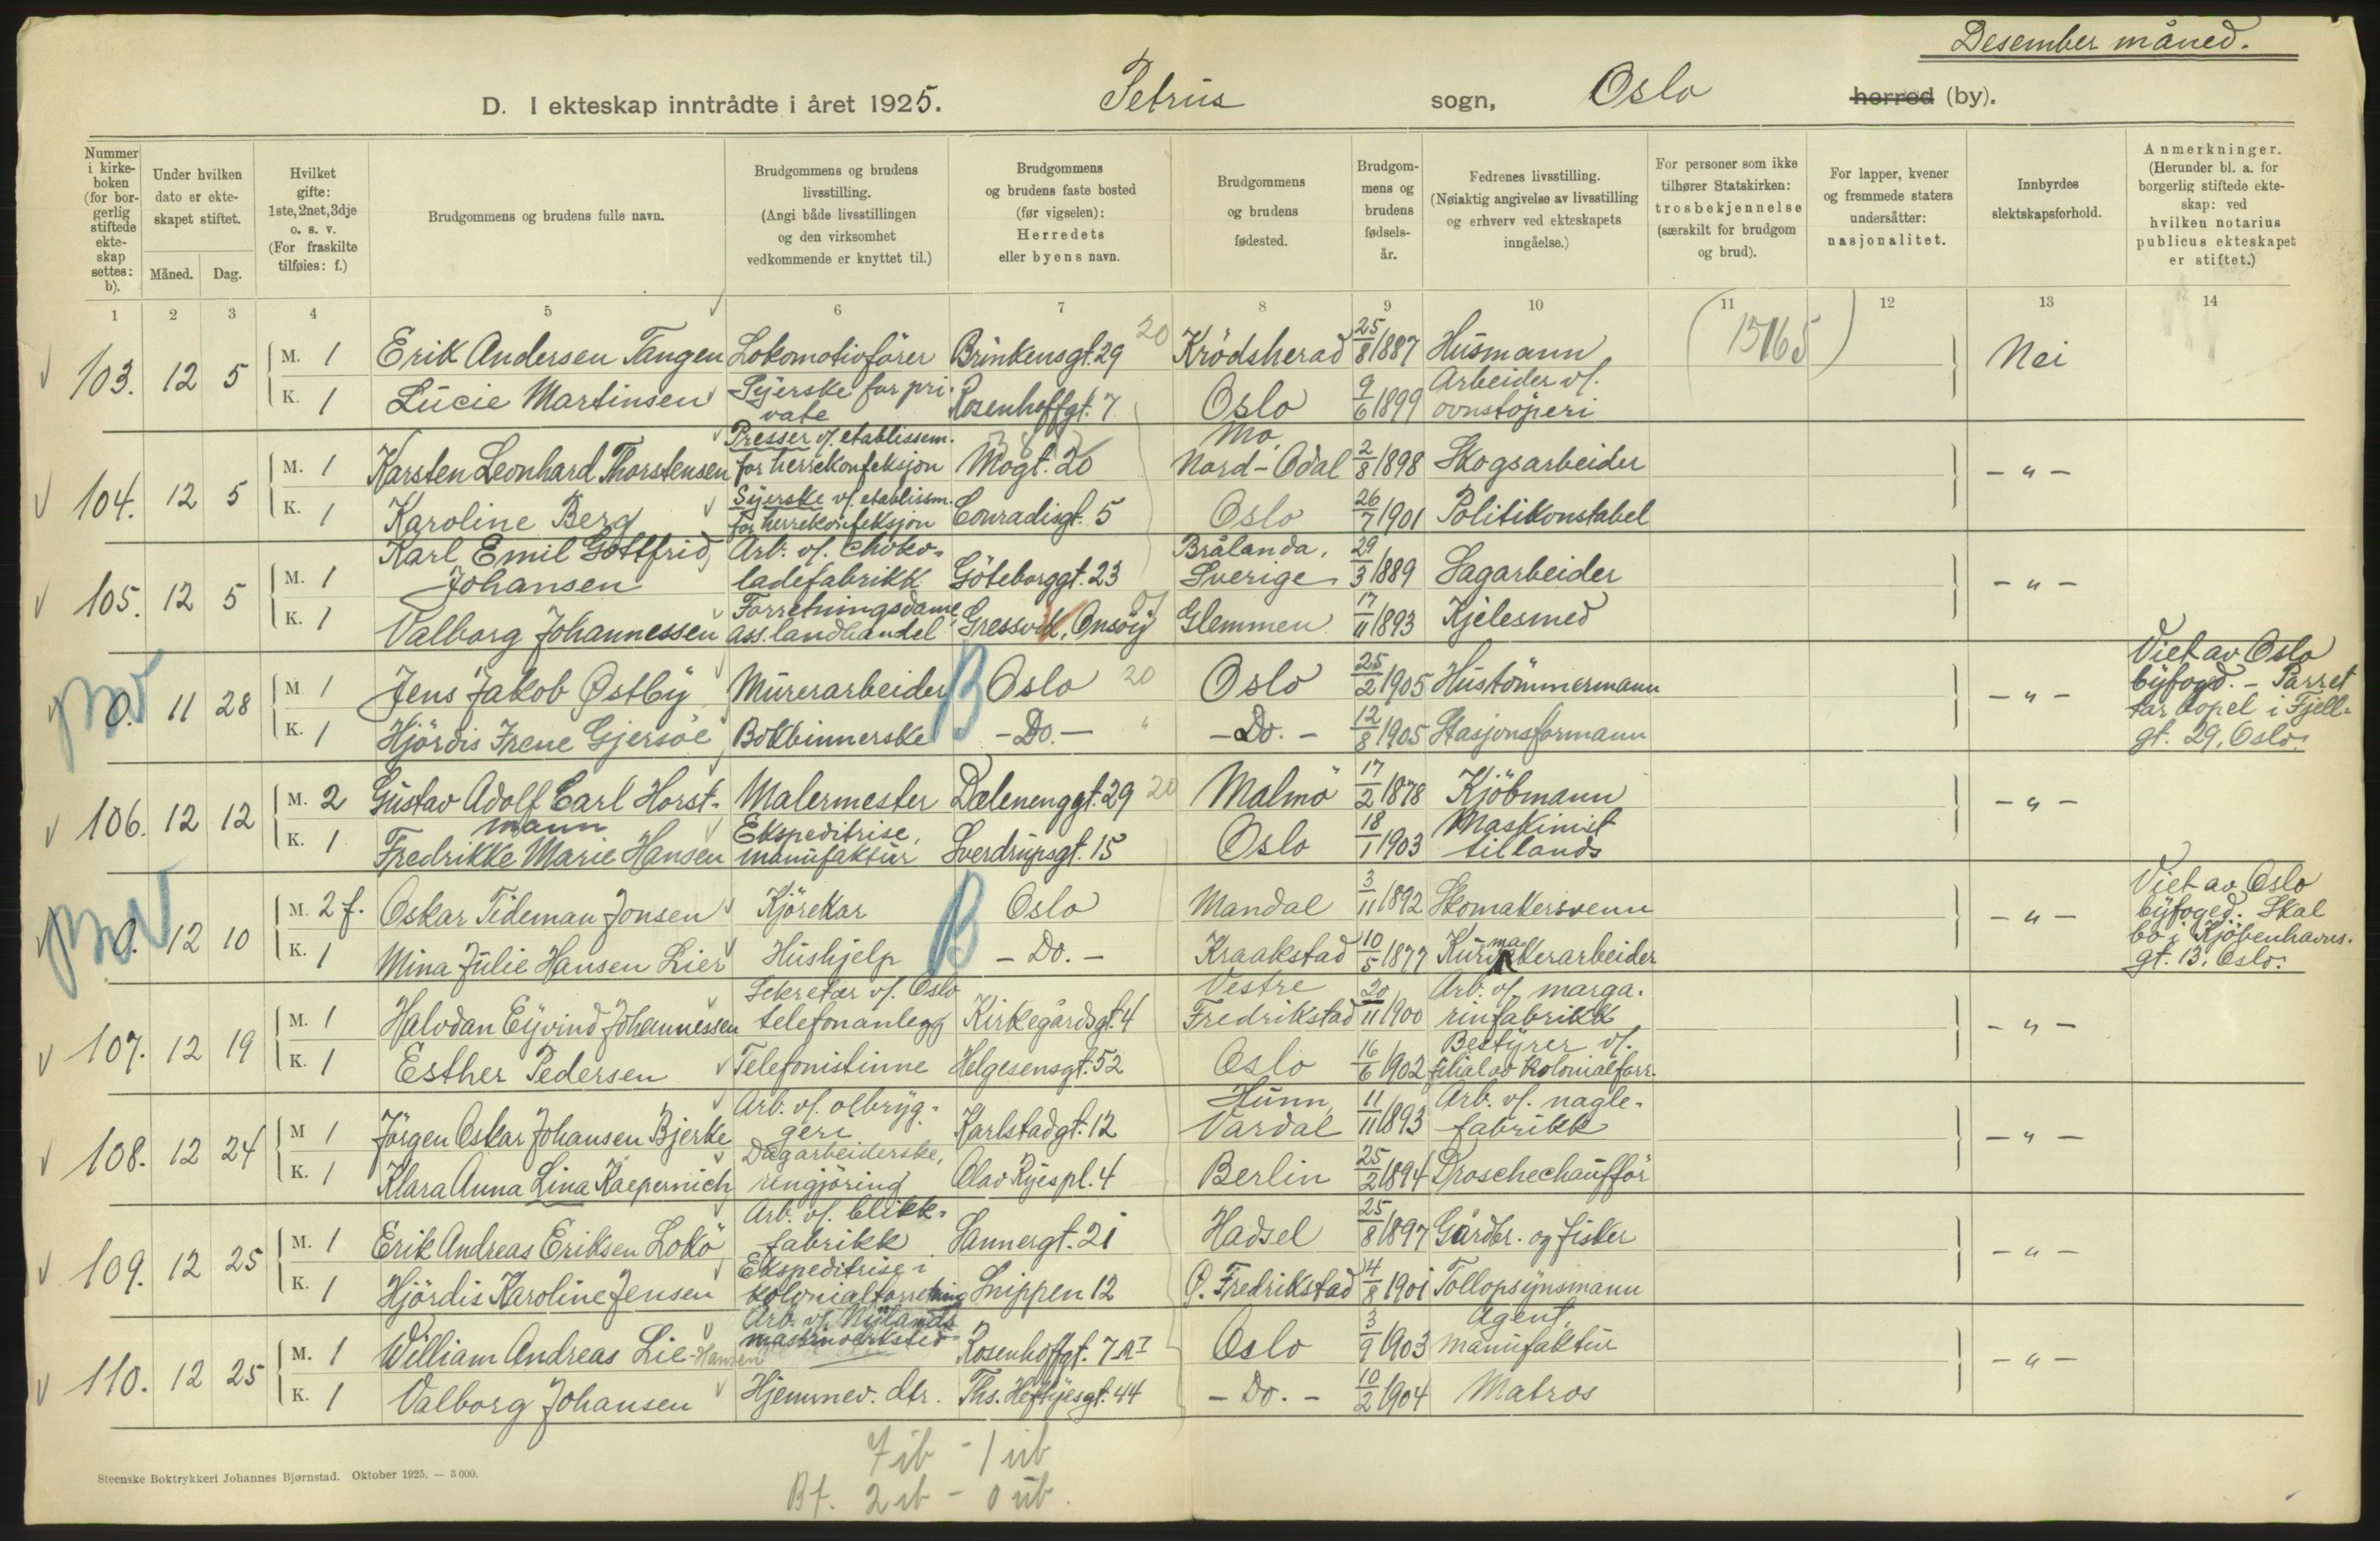 Desember måned.
D. I ekteskap inntrådte i året 1925. Petrus sogn, Oslo herred (by).
Nummer i kirkeboken (for borgerlig stiftede ekteskap settes: b).
Under hvilken dato er ekteskapet stiftet.
Måned. Dag.
Hvilket gifte: 1ste, 2net, 3dje o. s. v. (For fraskilte tilføies: f.)
Brudgommens og brudens fulle navn.
Brudgommens og brudens livsstilling. (Angi både livsstillingen og den virksomhet vedkommende er knyttet til.)
Brudgommens og brudens faste bosted (før vigselen): Herredets eller byens navn.
Brudgommens og brudens fødested.
Brudgommens og brudens fødselsår.
Fedrenes livsstilling. (Nøiaktig angivelse av livsstilling og erhverv ved ekteskapets inngåelse.)
For personer som ikke tilhører Statskirken: trosbekjennelse (særskilt for brudgom og brud).
For lapper, kvener og fremmede staters undersåtter: nasjonalitet.
Innbyrdes slektskapsforhold.
Anmerkninger. (Herunder bl. a. for borgerlig stiftede ekteskap: ved hvilken notarius publicus ekteskapet er stiftet.)
1 2 3 4 5 6 7 8 9 10 11 12 13 14
(15165)
103. 12 5 M. 1 Erik Andersen Tangen Lokomotivfører Brinkensgt. 29 20 Krödsherad 25/8 1887 Husmann Nei
K. 1 Lucie Martinsen Syerske for private Rosenhoffgt. 7 Oslo 9/6 1899 Arbeider v/. ovnstøperi
104. 12 5 M. 1 Karsten Leonhard Thorstensen Presser v/. etablissem. for herrekonfeksjon Mogt. 20 Mo, Nord-Odal 2/8 1898 Skogsarbeider - " -
K. 1 Karoline Berg Syerske v/. etablissm. for herrekonfeksjon Conradisgt. 5 Oslo 26/7 1901 Politikonstabel
105. 12 5 M. 1 Karl Emil Gottfrid Johansen Arb. v/. chokoladefabrikk Göteborggt. 23 Brålanda, Sverige 29/3 1889 Sagarbeider - " -
K. 1 Valborg Johannessen Forretningsdame ass. landhandel Gressvik, Onsöy Glemmen 17/11 1893 Kjelesmed
0. 11 28 M. 1 Jens Jakob Østby Murerarbeider B Oslo 20 Oslo 25/2 1905 Hustömmermann - " - Viet av Oslo byfoged. - Parret tar bopel i Fjellgt. 29, Oslo.
K. 1 Hjördis Irene Gjersöe Bokbinnerske - Do. - " - Do. - 12/8 1905 Stasjonsformann
106. 12 12 M. 2 Gustav Adolf Carl Horstmann Malermester Dælenenggt. 29 20 Malmö 17/2 1878 Kjöbmann - " -
K. 1 Fredrikke Marie Hansen Ekspeditrise, manufaktur Sverdrupsgt. 15 Oslo 18/1 1903 Maskinist tillands
0. 12 10 M. 2 f. Oskar Tideman Jonsen Kjörekar B Oslo Mandal 3/11 1892 Skomakersvenn - " - Viet av Oslo byfoged. Skal bo i Kjöbenhavnsgt. 13, Oslo.
K. 1 Mina Julie Hansen Lier Hushjelp - Do. - Kraakstad 10/5 1877 Kurvmakerarbeider
107. 12 19 M. 1 Halvdan Eyvind Johannessen Sekretær v/. Oslo telefonanlegg Kirkegårdsgt. 4 Vestre Fredrikstad 20/11 1900 Arb. v/. margarinfabrikk - " -
K. 1 Esther Pedersen Telefonistinne Helgesensgt. 52 Oslo 16/6 1902 Bestyrer v/. filial av kolonialforr.
108. 12 24 M 1 Jörgen Oskar Johansen Bjerke Arb. v/. ølbryggeri Karlstadgt. 12 Hunn, Vardal 11/11 1893 Arb. v/. naglefabrikk - " -
K. 1 Klara Anna Lina Kaepernich Dagarbeiderske, rengjøring Olav Ryespl. 4 Berlin 25/2 1894 Droschechaufför
109. 12 25 M. 1 Erik Andreas Eriksen Lokö Arb. v/. blikkfabrikk Sannergt. 21 Hadsel 25/8 1897 Gårdbr. og fisker - " -
K. 1 Hjördis Karoline Jensen Ekspeditrise i kolonialforretning Snippen 12 Ø. Fredrikstad 4/8 1901 Tollopsynsmann
110. 12 25 M. 1 William Andreas Lie-Hansen Arb. v/. Nylands maskinverksted Rosenhoffgt. 7 A I Oslo 3/9 1903 Agent, manufaktur - " -
K. 1 Valborg Johansen Hjemmev. dtr. Ths. Heftyesgt. 44 - Do. - 10/2 1904 Matros
7 ib - 1 ub
Bf. 2 ib - 0 ub.
Steenske Boktrykkeri Johannes Bjørnstad. Oktober 1925. — 3 000.